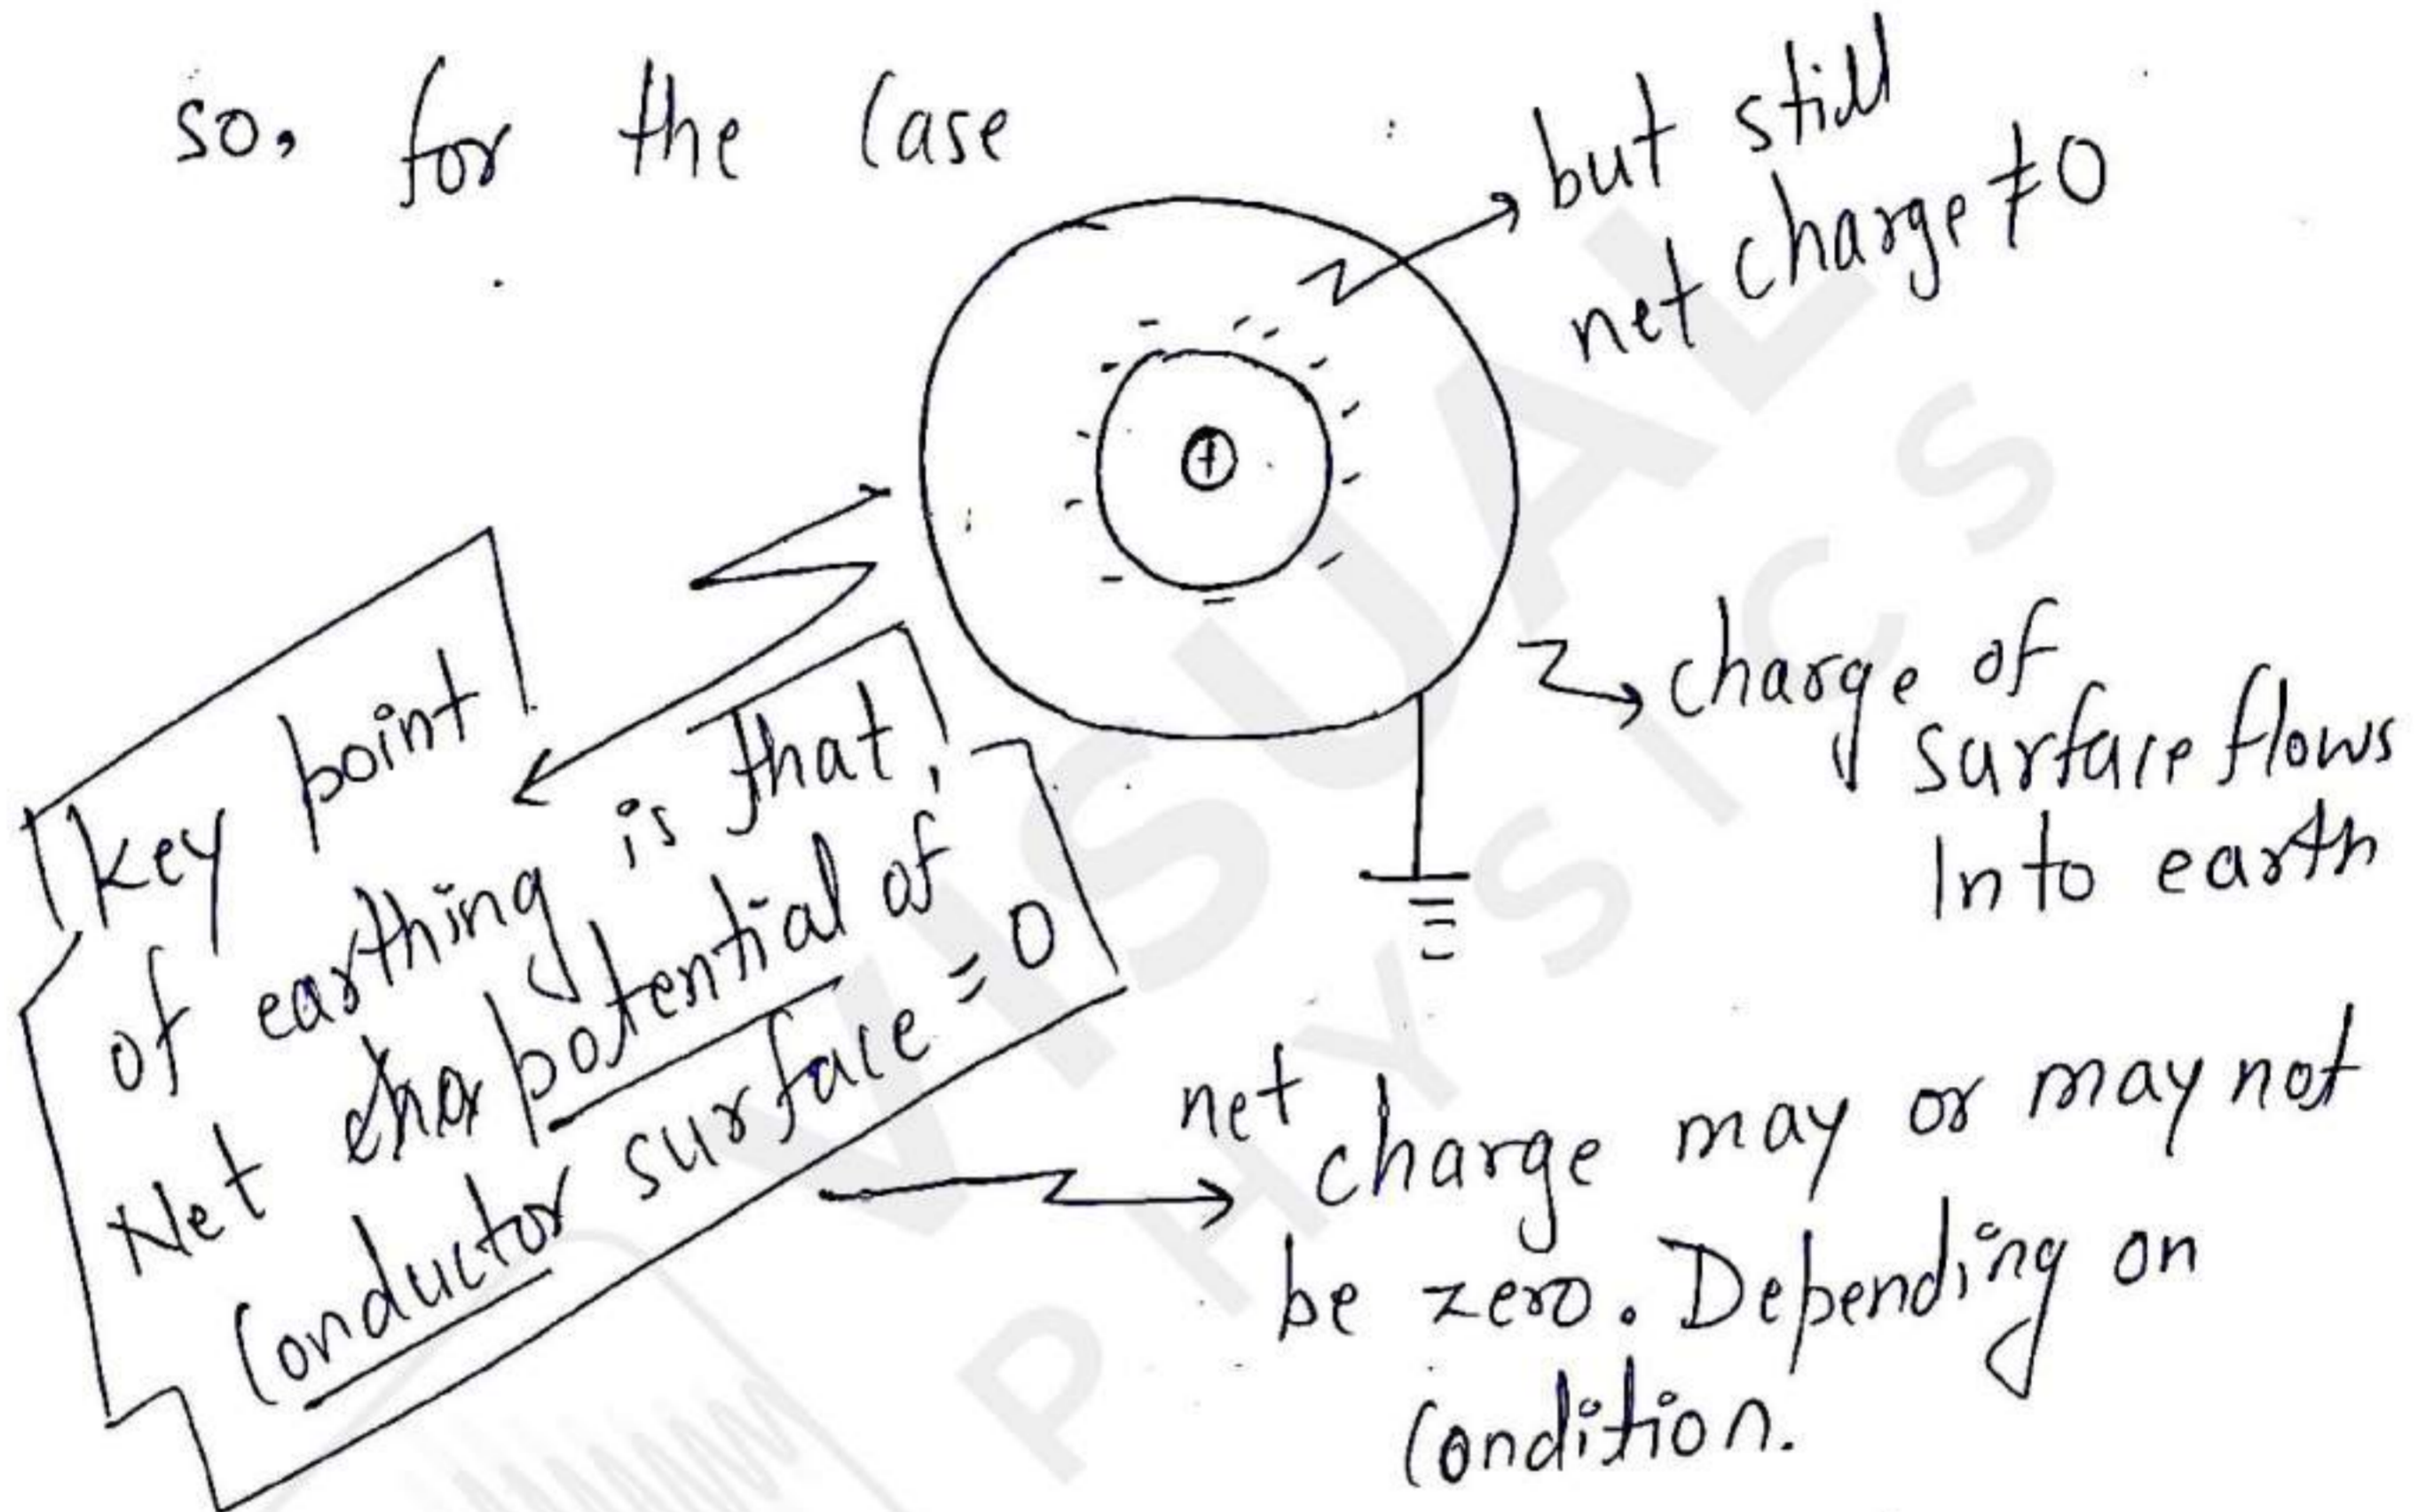 so, for the case
but still
net charge ≠ 0
+
charge of
surface flows
Into earth
key point
of earthing is that,
Net potential of
conductor surface = 0
net
charge may or may not
be zero. Depending on
condition.
VISUAL
PHYSICS